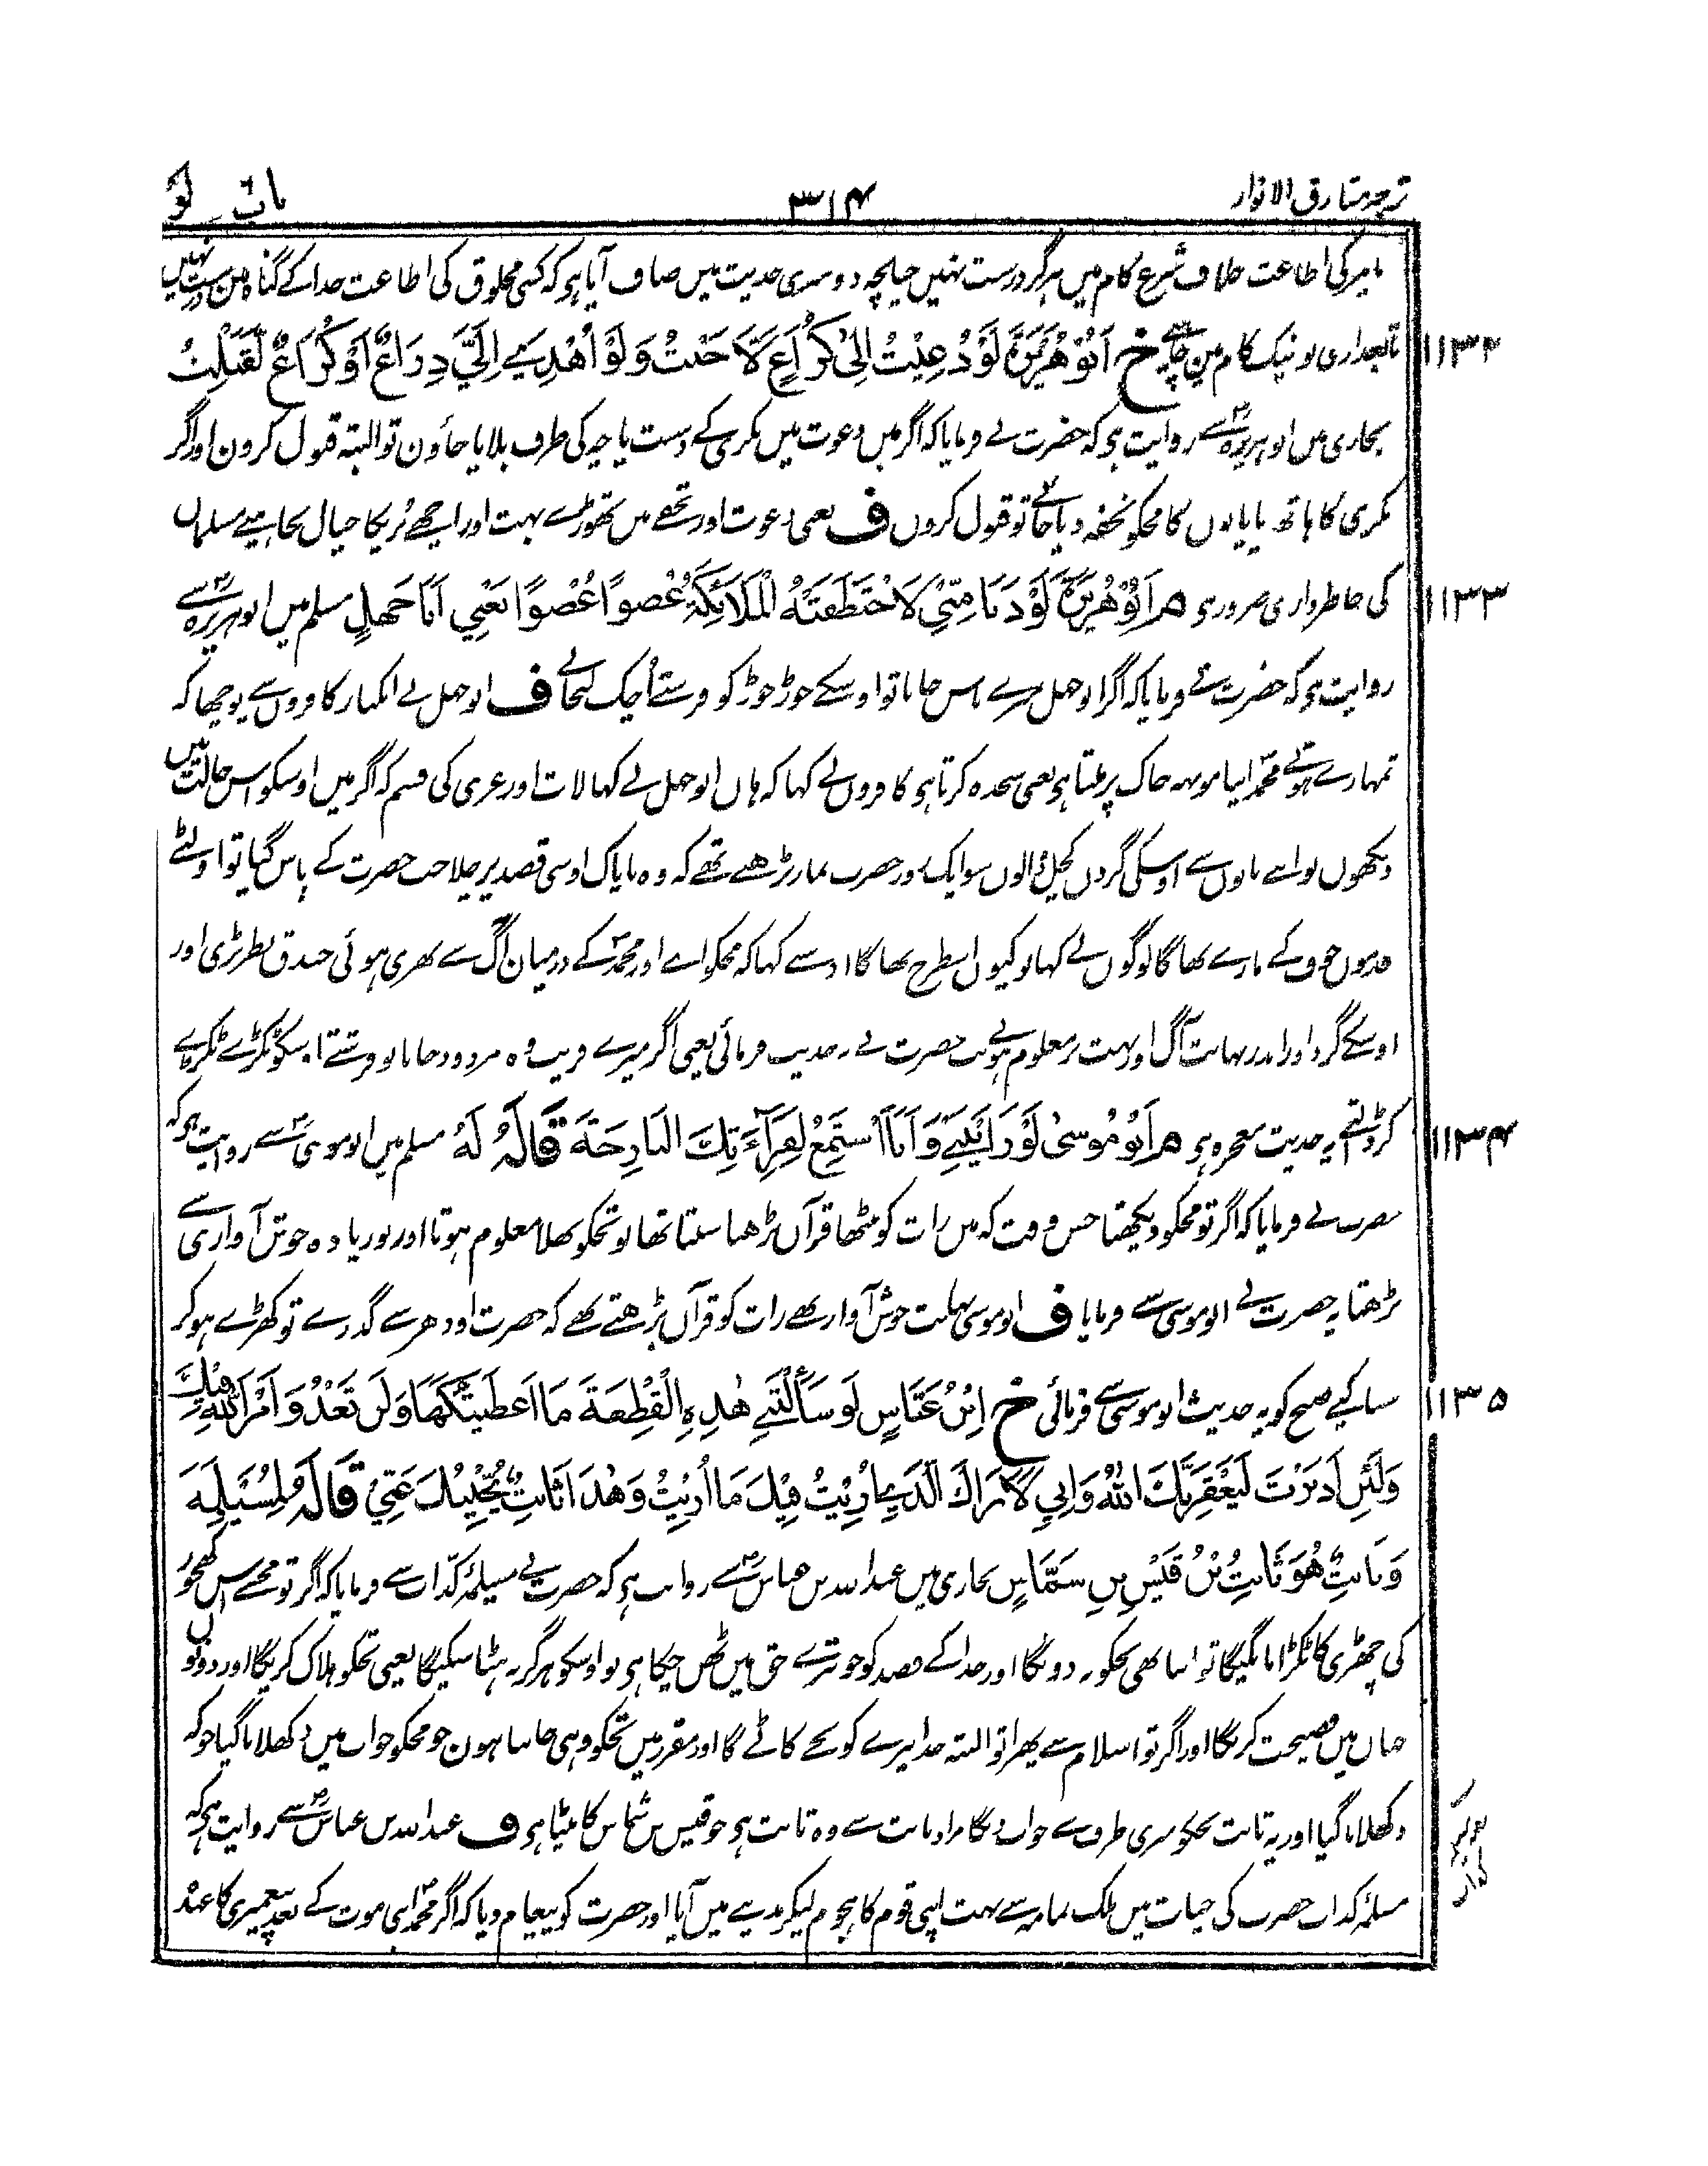 ترجمہ مشارق الانوار ۳۱۴ باب لو
یا پیر کی اطاعت خلاف شرع کام میں ہرگز درست نہیں چنانچہ دوسری حدیث میں صاف آیا ہو کہ کسی مخلوق کی اطاعت خدا کے گناہ میں درست نہیں
۱۱۳۲ تابعداری تو نیک کام مین چاہیے خ اَبُوْ هُرَيْرَةَ لَوْ دُعِيْتُ اِلىٰ كُرَاعٍ لَاَجَبْتُ وَلَوْ اُهْدِيَ اِلَيَّ ذِرَاعٌ اَوْ كُرَاعٌ لَقَبِلْتُ
بخاری میں ابو ہریرہ سے روایت ہو کہ حضرت نے فرمایا کہ اگر میں دعوت میں بکری کے دست یا پاچہ کی طرف بلایا جاؤن تو البتہ قبول کرون اور اگر
بکری کا ہاتھ یا پایوں کا مجکو تحفہ دیا جائے تو قبول کروں ف یعنی دعوت اور تحفے میں تھوڑے بہت اور اچھے بُریکا خیال نچاہیے مسلماں
۱۱۳۳ کی خاطرداری ضرور ہو م اَبُوْ هُرَيْرَةَ لَوْ دَنَا مِنِّيْ لَاخْتَطَفَتْهُ الْمَلَائِكَةُ عُضْوًا عُضْوًا يَعْنِي اَبَا جَهْلٍ مسلم میں ابو ہریرہ سے
روایت ہو کہ حضرت نے فرمایا کہ اگر ابو جہل میرے پاس جاتا تو اوسکے جوڑ جوڑ کو فرشتے اُچک لیجاتے ف ابو جہل نے ایکبار کافروں سے پوچھا کہ
تمہارے ہوتے محمد اپنا مونہہ خاک پر ملتا ہو یعنی سجدہ کرتا ہو کافروں نے کہا کہ ہاں ابو جہل نے کہا لات اور عزی کی قسم کہ اگر میں اوسکو اس حالت میں
دیکھوں تو اپنے پانوں سے اوسکی گردں کچل ڈالوں سو ایک روز حضرت نماز پڑھتے تھے کہ وہ ناپاک اوسی قصد پر چلا جب حضرت کے پاس گیا تو اولٹے
قدموں خوف کے مارے بھاگا لوگوں نے کہا تو کیوں اسطرح بھاگا اوسے کہا کہ مجکو اپنے اور محمد کے درمیان آگ سے بھری ہوئی خندق نظر پڑی اور
اوسکے گرد اور اندر نہایت آگ اور بہت پر معلوم ہوئے تب حضرت نے یہ حدیث فرمائی یعنی اگر میرے قریب وہ مردود جاتا تو فرشتے اوسکو ٹکڑے ٹکڑے
۱۱۳۴ کر ڈالتے یہ حدیث معجزہ ہو م اَبُوْ مُوْسىٰ لَوْ رَاَيْتَنِيْ وَاَنَا اَسْتَمِعُ لِقِرَآءَتِكَ الْبَارِحَةَ قَالَهُ لَهُ مسلم میں ابو موسی سے روایت ہو کہ
حضرت نے فرمایا کہ اگر تو مجکو دیکھتا جس وقت کہ میں رات کو تیرا قرآن پڑھنا سنتا تھا تو تجکو بھلا معلوم ہوتا اور تو زیادہ خوش آوازی سے
پڑھتا یہ حضرت نے ابو موسی سے فرمایا ف ابو موسی بہت خوش آواز تھے رات کو قرآں پڑھتے تھے کہ حضرت اودھر سے گذرے تو کھڑے ہو کر
۱۱۳۵ سنا کیے صبح کو یہ حدیث ابو موسی سے فرمائی خ اِبْنُ عَبَّاسٍ لَوْ سَاَلْتَنِيْ هٰذِهِ الْقِطْعَةَ مَا اَعْطَيْتُكَهَا وَلَنْ تَعْدُوَ اَمْرَ اللّٰهِ فِيْكَ
وَلَئِنْ اَدْبَرْتَ لَيَعْقِرَنَّكَ اللّٰهُ وَاِنِّي لَاَرَاكَ الَّذِيْ اُرِيْتُ فِيْكَ مَا اُرِيْتُ وَهٰذَا ثَابِتٌ يُجِيْبُكَ عَنِّيْ قَالَهُ لِمُسَيْلِمَةَ
وَثَابِتٌ هُوَ ثَابِتُ بْنُ قَيْسِ بْنِ شَمَّاسٍ بخاری میں عبد اللہ بن عباس سے روایت ہو کہ حضرت نے مسیلمہ کذاب سے فرمایا کہ اگر تو مجھسے اس کھجور
کی چھڑی کا ٹکڑا مانگیگا تو اتنا بھی تجکو نہ دونگا اور خدا کے قصد کو جو تیرے حق میں ٹھن چکا ہو تو اوسکو ہرگز نہ ہٹا سکیگا یعنی تجکو ہلاک کریگا اور دونوں
جہاں میں فضیحت کریگا اور اگر تو اسلام سے پھرا تو البتہ خدا تیرے کونچے کاٹے گا اور مقرر میں تجکو وہی جانتا ہون جو مجکو خواب میں دکھلایا گیا جو کہ
دکھلایا گیا اور یہ ثابت تجکو میری طرف سے جواب دیگا مراد ثابت سے وہ ثابت ہو جو قیس بن شماس کا بیٹا ہو ف عبد اللہ بن عباس سے روایت ہو کہ
مسیلمہ کذاب حضرت کی حیات میں ملک یمامہ سے بہت اپنی قوم کا ہجوم لیکر مدینے میں آیا اور حضرت کو پیغام دیا کہ اگر محمد اپنی موت کے بعد پیغمبری کا عہد